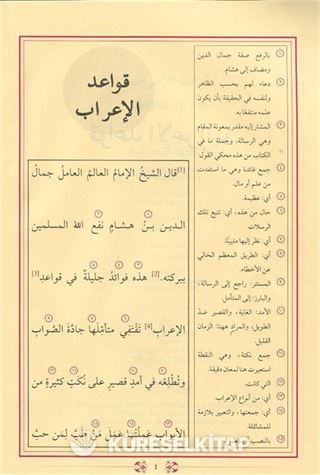 قواعد
الإعراب
[1]قال الشيخُ الإمامُ العالمُ العاملُ جمالُ
الدين بنُ هشامٍ نفع اللهُ المسلمين
ببركته. [2] هذه فوائدُ جليلةٌ في قواعدِ [3]
الإعرابِ [4] تَقْتَفي متأمِّلَها جادّةَ الصَّوابِ
وتُطْلِعُه في أمدٍ قصيرٍ على نُكَتٍ كثيرةٍ من
الأبوابِ عَمِلْتُها عَمَلَ مَنْ طَبَّ لِمَن حبَّ
١ بالرفع صفة جمال الدين
ومضاف إلى هشام.
٢ دعاء لهم بحسب الظاهر
ولنفسه في الحقيقة بأن يكون
علمه منتفعًا به.
٣ المشار إليه مقدر بمعونة المقام
وهي الرسالة، وجملة ما في
الكتاب من هذه محكي القول
٤ جمع فائدة وهي ما استفدت
من علم أو مال.
٥ أي: عظيمة.
٦ حال من هذه، أي: تتبع تلك
الرسالات
٧ أي: نظر إليها متبينًا.
٨ أي: الطريق المعظم الخالي
عن الأخطاء.
٩ المستتر: راجع إلى الرسالة،
والبارز: إلى المتأمل.
١٠ الأمد: الغاية، والقصير ضد
الطويل، والمراد ههنا: الزمان
القليل.
١١ جمع نكتة، وهي النقطة
استعيرت هنا لمعان دقيقة.
١٢ التي كانت.
١٣ أي: من أنواع الإعراب.
١٤ أي: جمعتها، والتعبير بلازمة
للمشاكلة.
١٥ بالنصب
KURESELKİTAP
٤